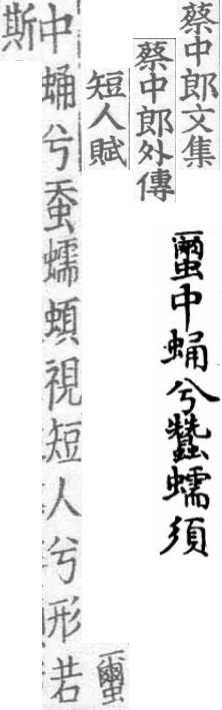 蔡中郎文集
蠒中蛹兮蠶蠕須
蔡中郎外傳
短人賦
蠒
中蛹兮蚕蠕視短人兮形若
斯